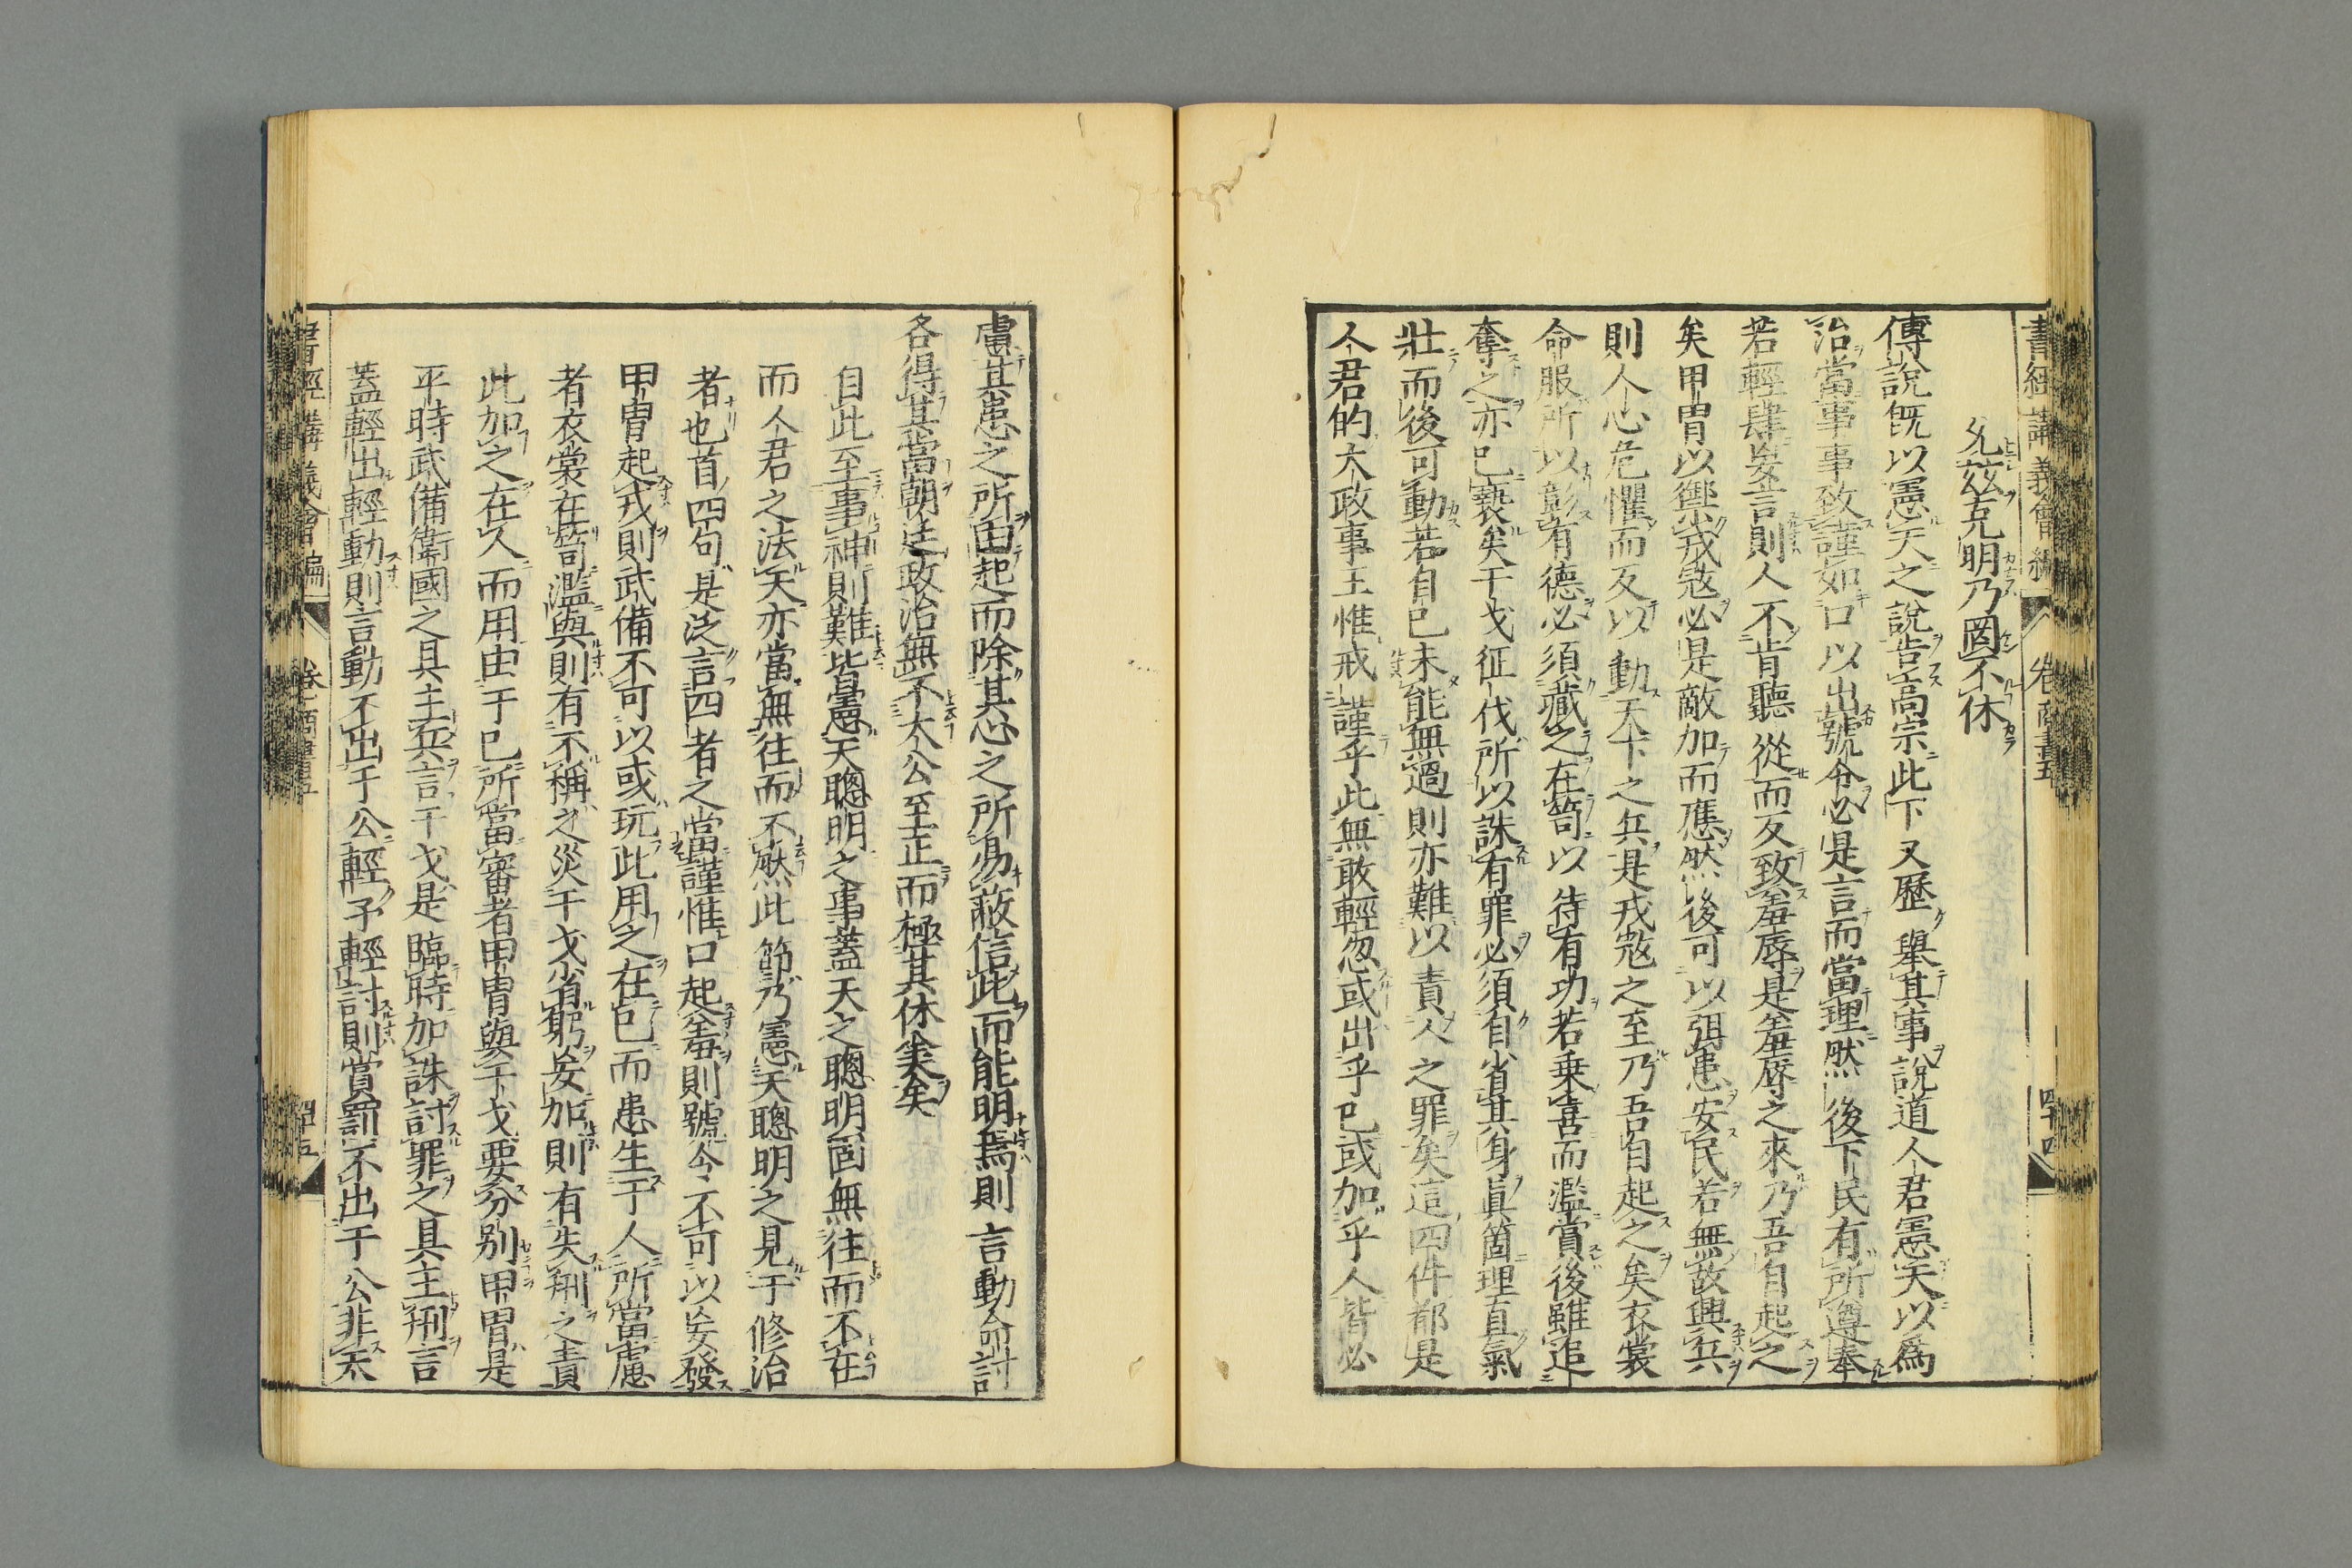 書經講義會編 卷 商書五 四十四
允茲克明乃罔不休
傅說既以憲天之說告高宗此下又歷舉其事說道人君憲天以爲
治當事事致謹如口以出號令必是言而當理然後下民有所遵奉
若輕肆妄言則人不肯聽從而反致羞辱是羞辱之來乃吾自起之
矣甲冑以禦戎寇必是敵加而應然後可以弭患安民若無故興兵
則人心危懼而反以動天下之兵是戎寇之至乃吾自起之矣衣裳
命服所以彰有德必須藏之在笥以待有功若乗喜而濫賞後雖追
奪之亦已褻矣干戈征伐所以誅有罪必須自省其身眞箇理直氣
壯而後可動若自己未能無過則亦難以責人之罪矣這四件都是
人君的大政事王惟戒謹乎此無敢輕忽或出乎己或加乎人皆必
慮其患之所由起而除其心之所易蔽信此而能明焉則言動命討
各得其當朝廷政治無不大公至正而極其休美矣
自此至事神則難皆憲天聰明之事蓋天之聰明固無往而不在
而人君之法天亦當無往而不然此節乃憲天聰明之見于修治
者也首四句是泛言四者之當謹惟口起羞則號令不可以妄發
甲冑起戎則武備不可以或玩此用之在己而患生于人所當慮
者衣裳在笥濫與則有不稱之災干戈省躬妄加則有失刑之責
此加之在人而用由于己所當審者甲冑與干戈要分別甲冑是
平時武備衛國之具主兵言干戈是臨時加誅討罪之具主刑言
蓋輕出輕動則言動不出于公輕予輕討則賞罰不出于公非天
書經講義會編 卷 商書五 四十五